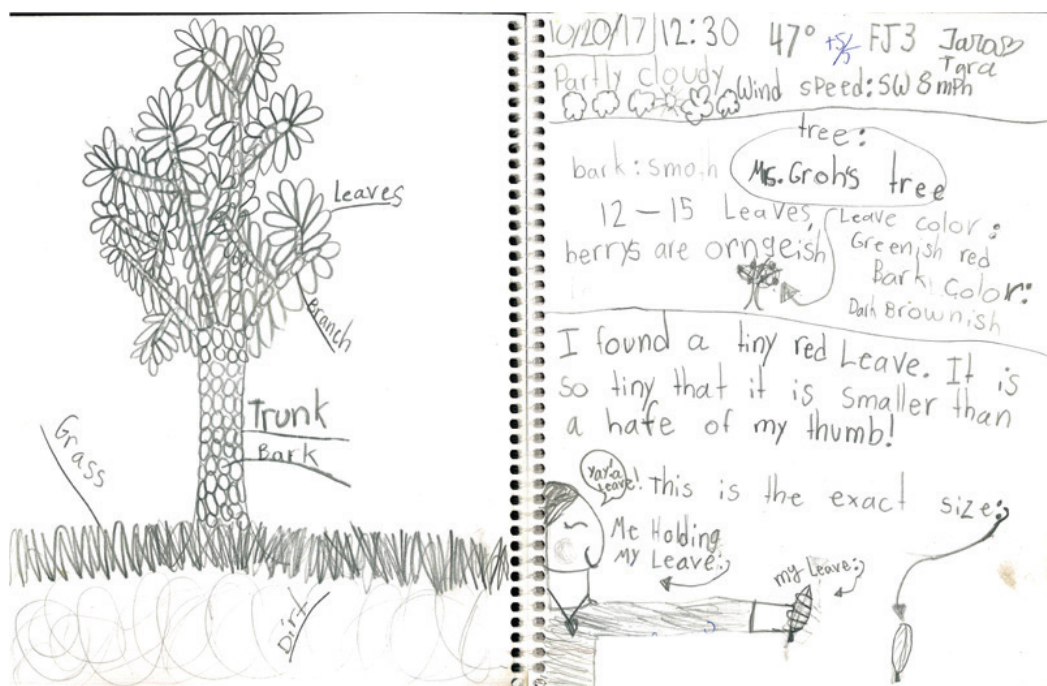 Leaves
Branch
Trunk
Bark
Grass
Dirt
10/20/17 12:30 47° +5/5 FJ3 Jara
Tara
Partly cloudy Wind speed: SW 8 mph
tree:
bark: smoth Mrs. Groh's tree
12 – 15 Leaves Leave color:
berrys are orngeish Greenish red
Bark color:
Dark Brownish
I found a tiny red Leave. It is
so tiny that it is smaller than
a hafe of my thumb!
Yay! a
Leave! This is the exact size:
Me Holding
My Leave:
my Leave: